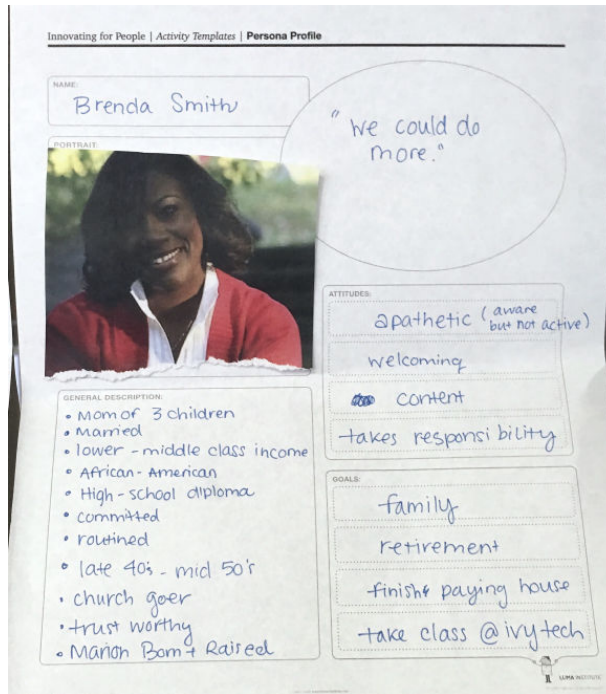 Innovating for People | Activity Templates | Persona Profile
NAME:
Brenda Smith
"We could do
more."
PORTRAIT:
ATTITUDES:
apathetic (aware
but not active)
welcoming
content
takes responsibility
GENERAL DESCRIPTION:
• Mom of 3 children
• Married
• lower-middle class income
• African-American
• High-school diploma
• committed
• routined
• late 40's - mid 50's
• church goer
• trust worthy
• Marion Born + Raised
GOALS:
family
retirement
finish paying house
take class @ivytech
LUMA INSTITUTE